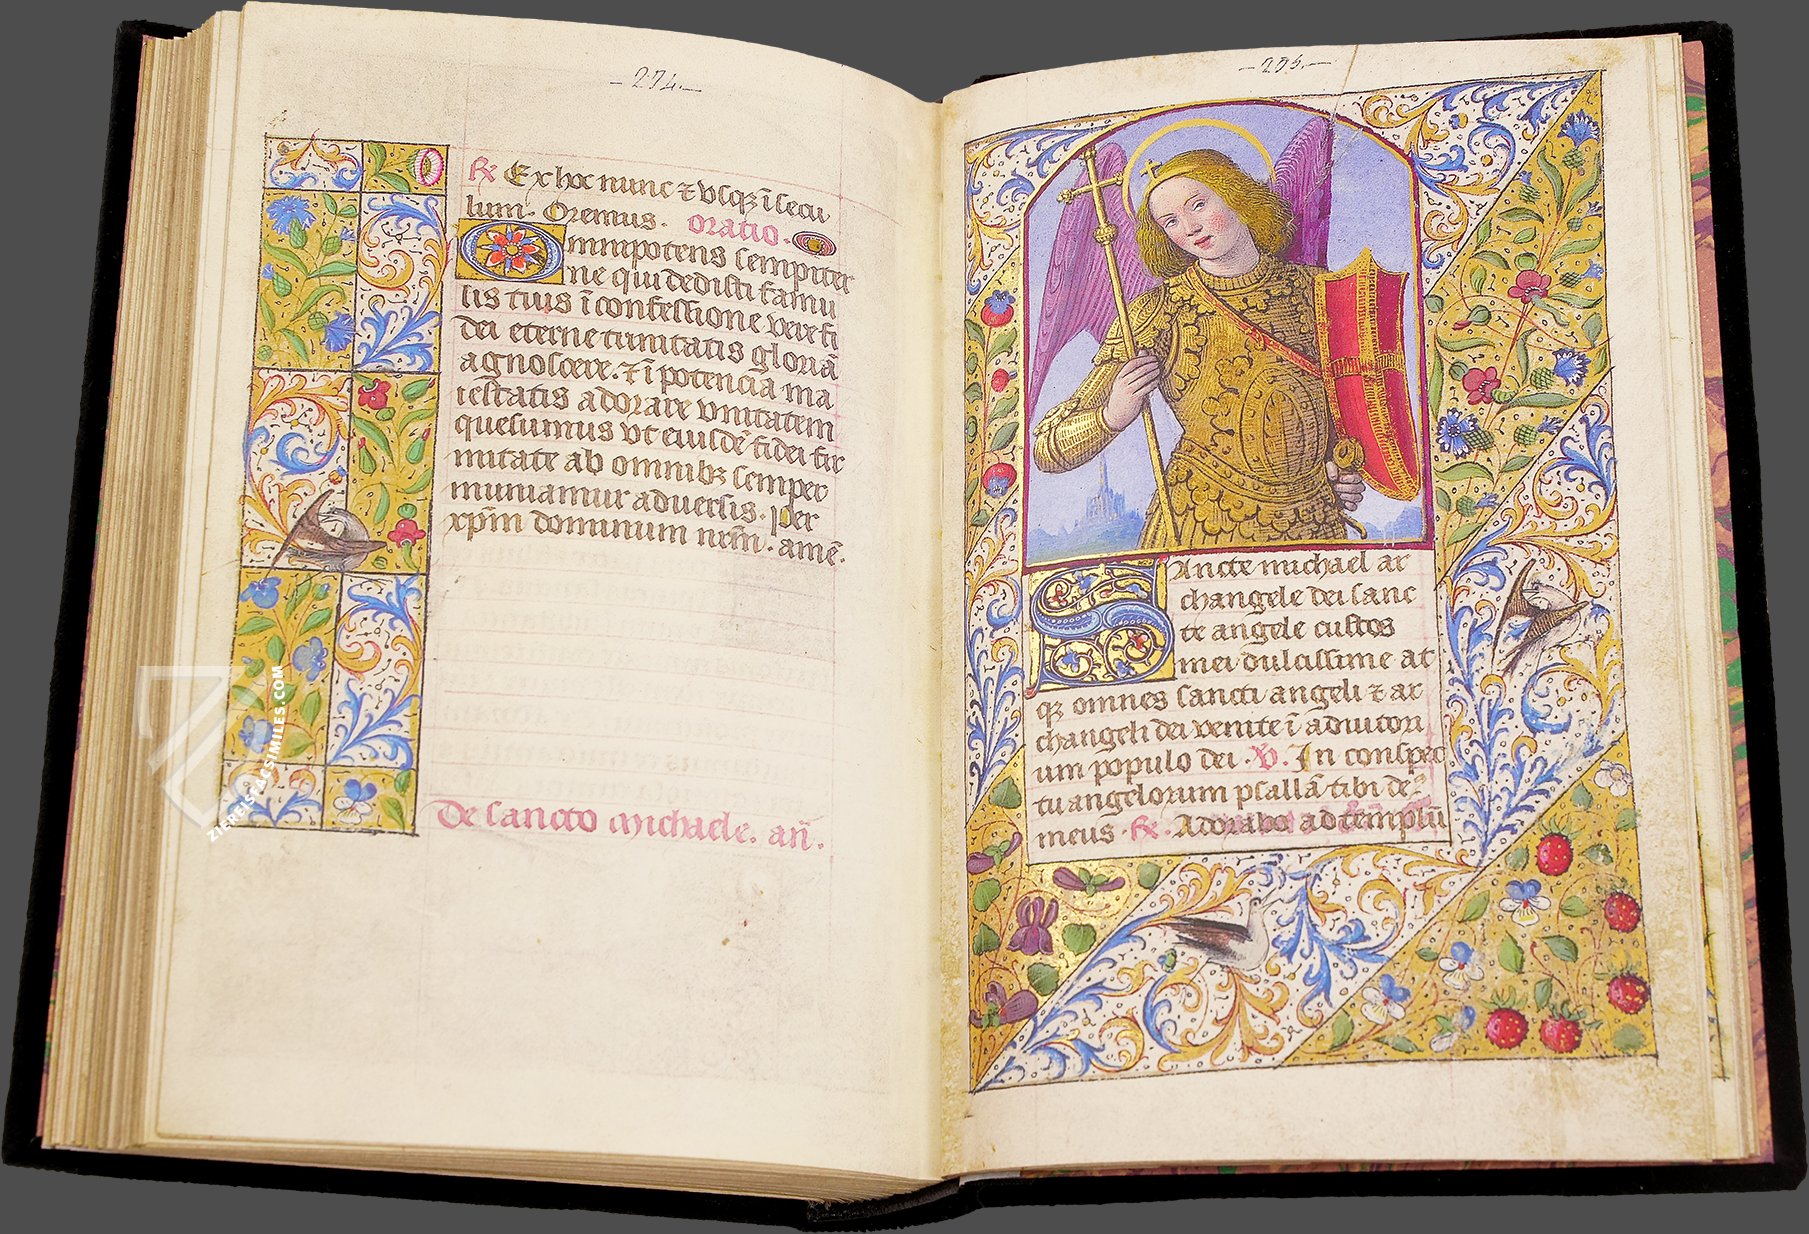 - 274. -
℟ Ex hoc nunc ⁊ vsqꝫ ī secu
lum. Oremus. Oratio.
Omnipotens sempiter
ne qui dedisti famu
lis tuis ī confessione vere fi
dei eterne trinitatis gloriā
agnoscere. ⁊ ī potencia ma
iestatis adorare vnitatem
quesumus vt eiusdē fidei fir
mitate ab omnibꝫ semper
muniamur aduersis. per
xp̄m dominum nrm̄. amē.
De sancto michaele. añ.
- 275. -
Sancte michael ar
changele dei sanc
te angele custos
mei dulcissime at
qꝫ omnes sancti angeli ⁊ ar
changeli dei venite ī adiutori
um populo dei. ℣. In conspec
tu angelorum psallā tibi deꝰ
meus. ℟. Adorabo ad templū
ZIEREIS FACSIMILES.COM